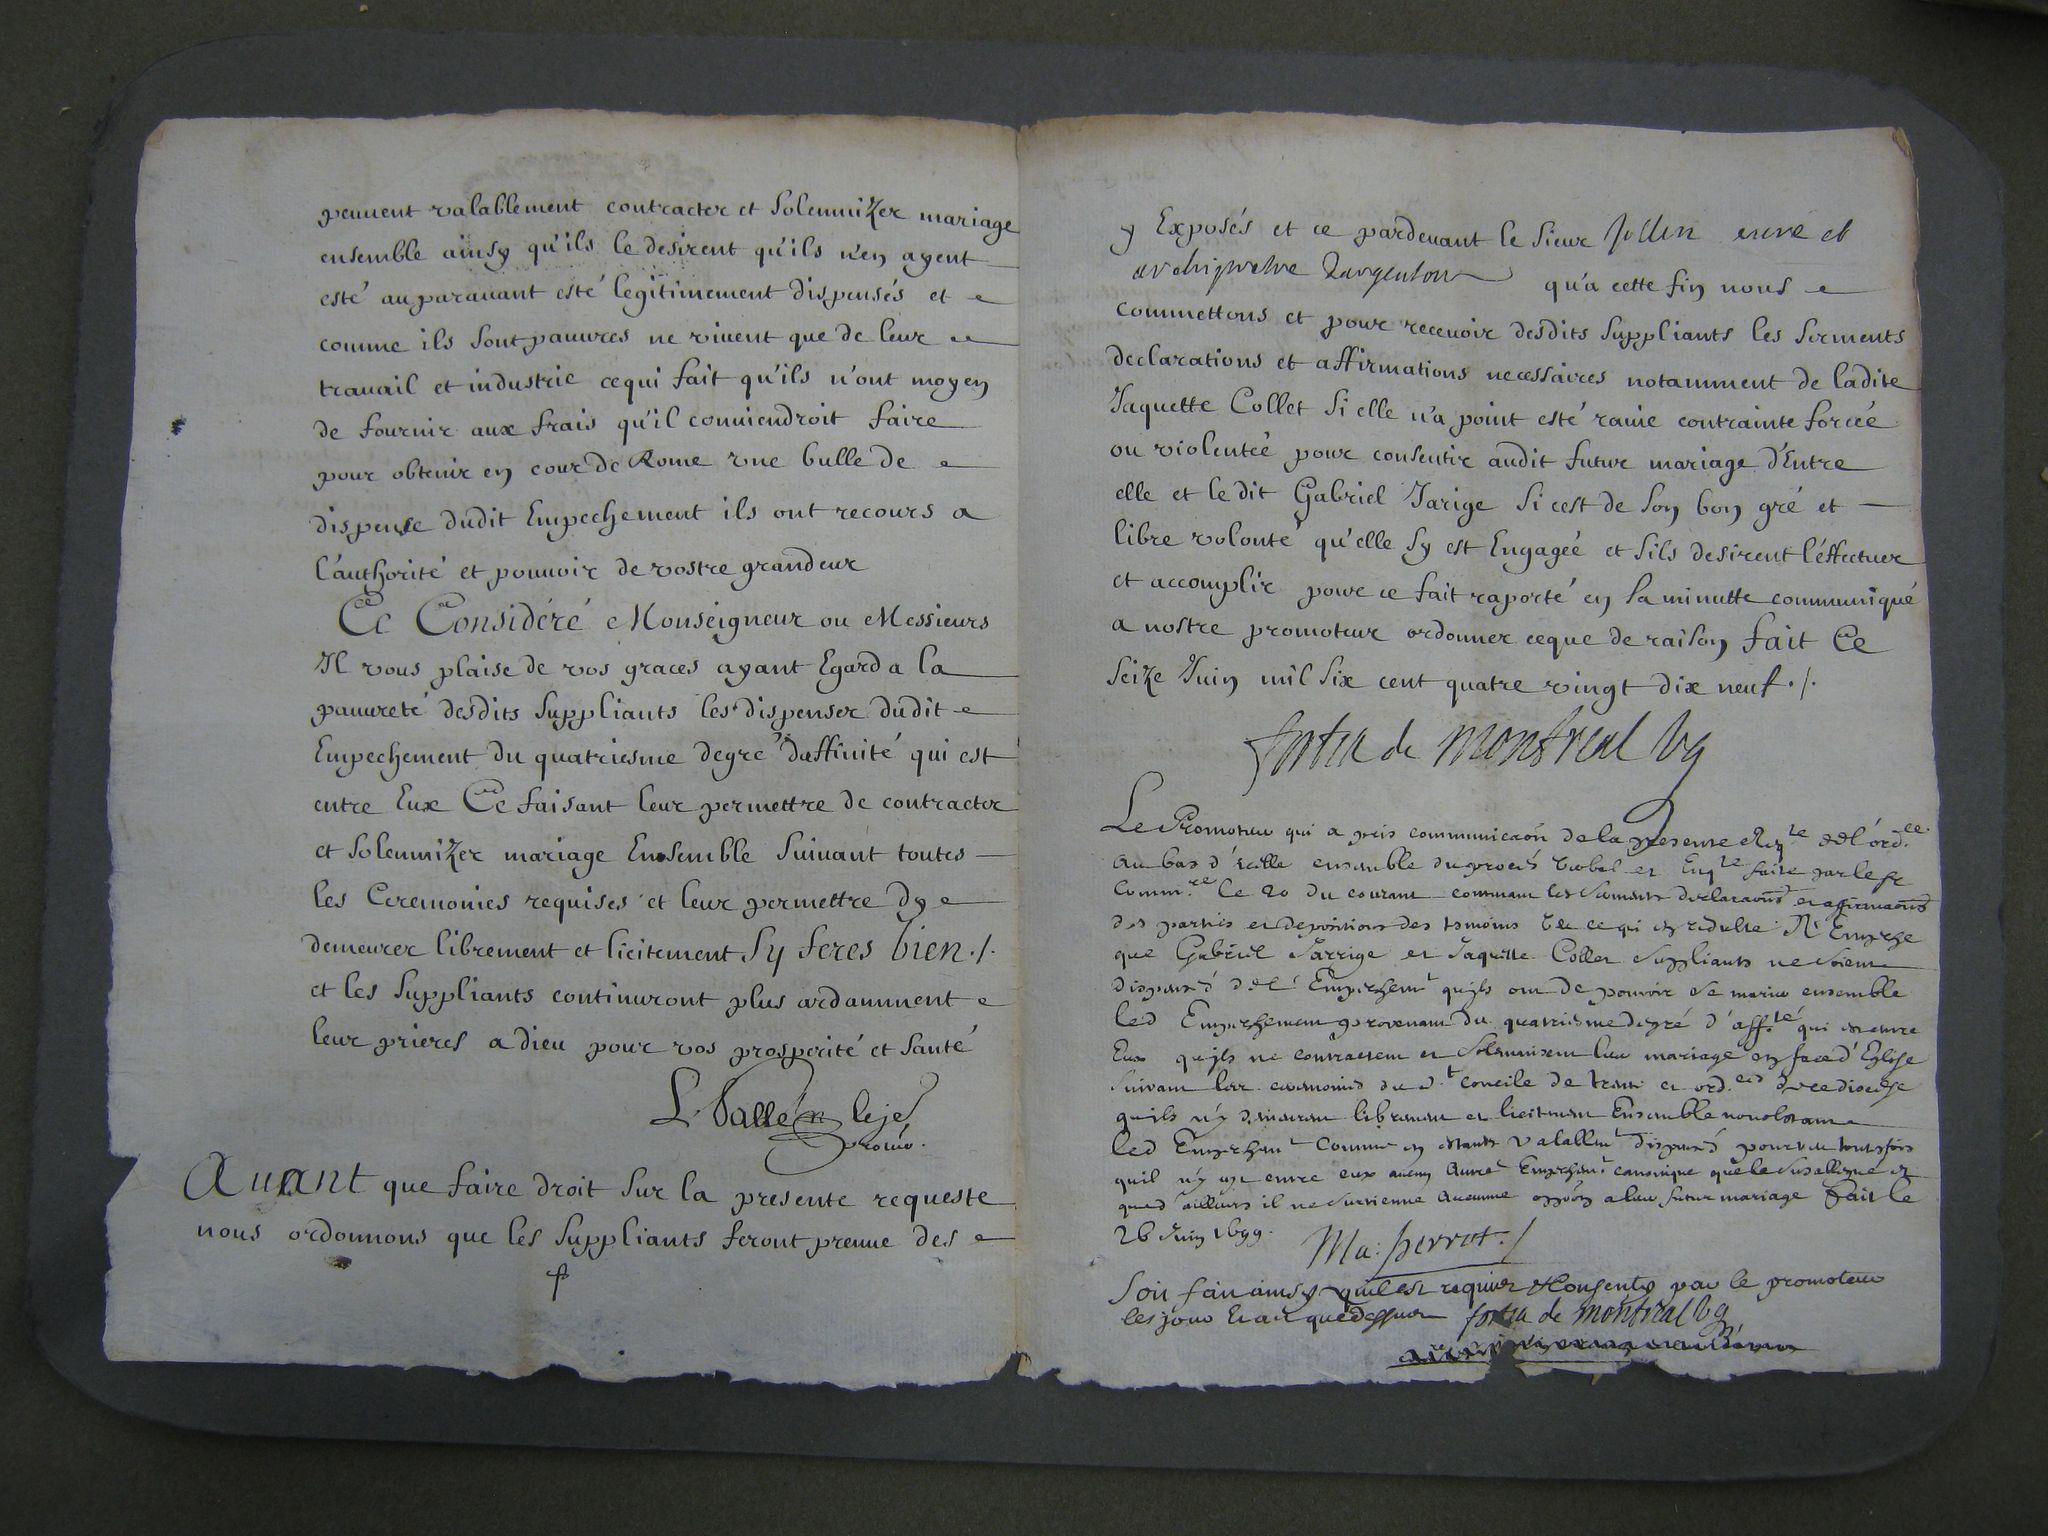 peuuent valablement contracter et Solemnizer mariage
ensemble ainsy qu'ils le desirent qu'ils n'en ayent
esté auparauant esté legitimement dispensés et
comme ils sont pauures ne viuent que de leur
trauail et industrie cequi fait qu'ils n'ont moyen
de fournir aux frais qu'il conuiendroit faire
pour obtenir en cour de Rome vne bulle de
dispense dudit Empechement ils ont recours a
l'authorité et pouuoir de vostre grandeur
Ce Considéré Monseigneur ou Messieurs
Il vous plaise de vos graces ayant Egard a la
pauureté desdits Suppliants les dispenser dudit
Empechement du quatriesme degré d'affinité qui est
entre Eux Ce faisant leur permettre de contracter
et Solemnizer mariage Ensemble Suiuant toutes
les Ceremonies requises et leur permettre dy
demeurer librement et licitement Sy feres bien ./.
et les Suppliants continuront plus ardamment
leur prieres a dieu pour vos prosperité et Santé
L. Vallée
Auant que faire droit Sur la presente requeste
nous ordonnons que les Suppliants feront preuue des
y Exposés et ce pardeuant le Sieur Jollin curé et
archiprestre Dargenton qu'a cette fin nous
commettons et pour receuoir desdits Suppliants les Serments
declarations et affirmations necessaires notamment de ladite
Jaquette Collet Si elle n'a point esté rauie contrainte forcée
ou violentée pour consentir audit futur mariage d'Entre
elle et le dit Gabriel Jarige Si cest de Son bon gré et
libre volonté qu'elle Sy est Engagée et Sils desirent l'éffectuer
et accomplir pour ce fait raporté en la minutte communiqué
a nostre promoteur ordonner ceque de raison fait Ce
Seize Juin mil Six cent quatre vingt dix neuf ./.
fortia de montreal vg
Le Promoteur qui a pris communicaon de la presente Reqte & de l'ordce
au bas d'icelle ensemble du proces verbal et Enqte faite par le Sr
Commre le 20 du courant contenant les Serments declaraons et affirmaons
des parties et depositions des temoins Veu ce qui en resulte N'Empeche
que Gabriel Jarrige et Jaquette Collet Suppliants ne Soient
dispensé de l'Empechemt qu'ils ont de pouuoir Se marier ensemble
led Empechement prouenant du quatriesme degré d'affté qui est entre
Eux qu'ils ne contractent et Solennisent leur mariage en face d'Eglise
Suiuant les ceremonies du St concile de trente et ordces de ce diocese
qu'ils n'y demeurent librement et licitement Ensemble nonobstant
led Empechemt Comme en estants valablemt dispensé pourveu toutesfois
quil n'y ayt entre eux aucun autre Empechemt canonique que le Susallegué et
que d'ailleurs il ne Suruienne aucunne oppõn a leur futur mariage Fait le
26 Juin 1699.
Ma: perrot ./
Soit fait ainsy quil est requis & Consenty par le promoteur
les jour & an que dessus fortia de montreal vg